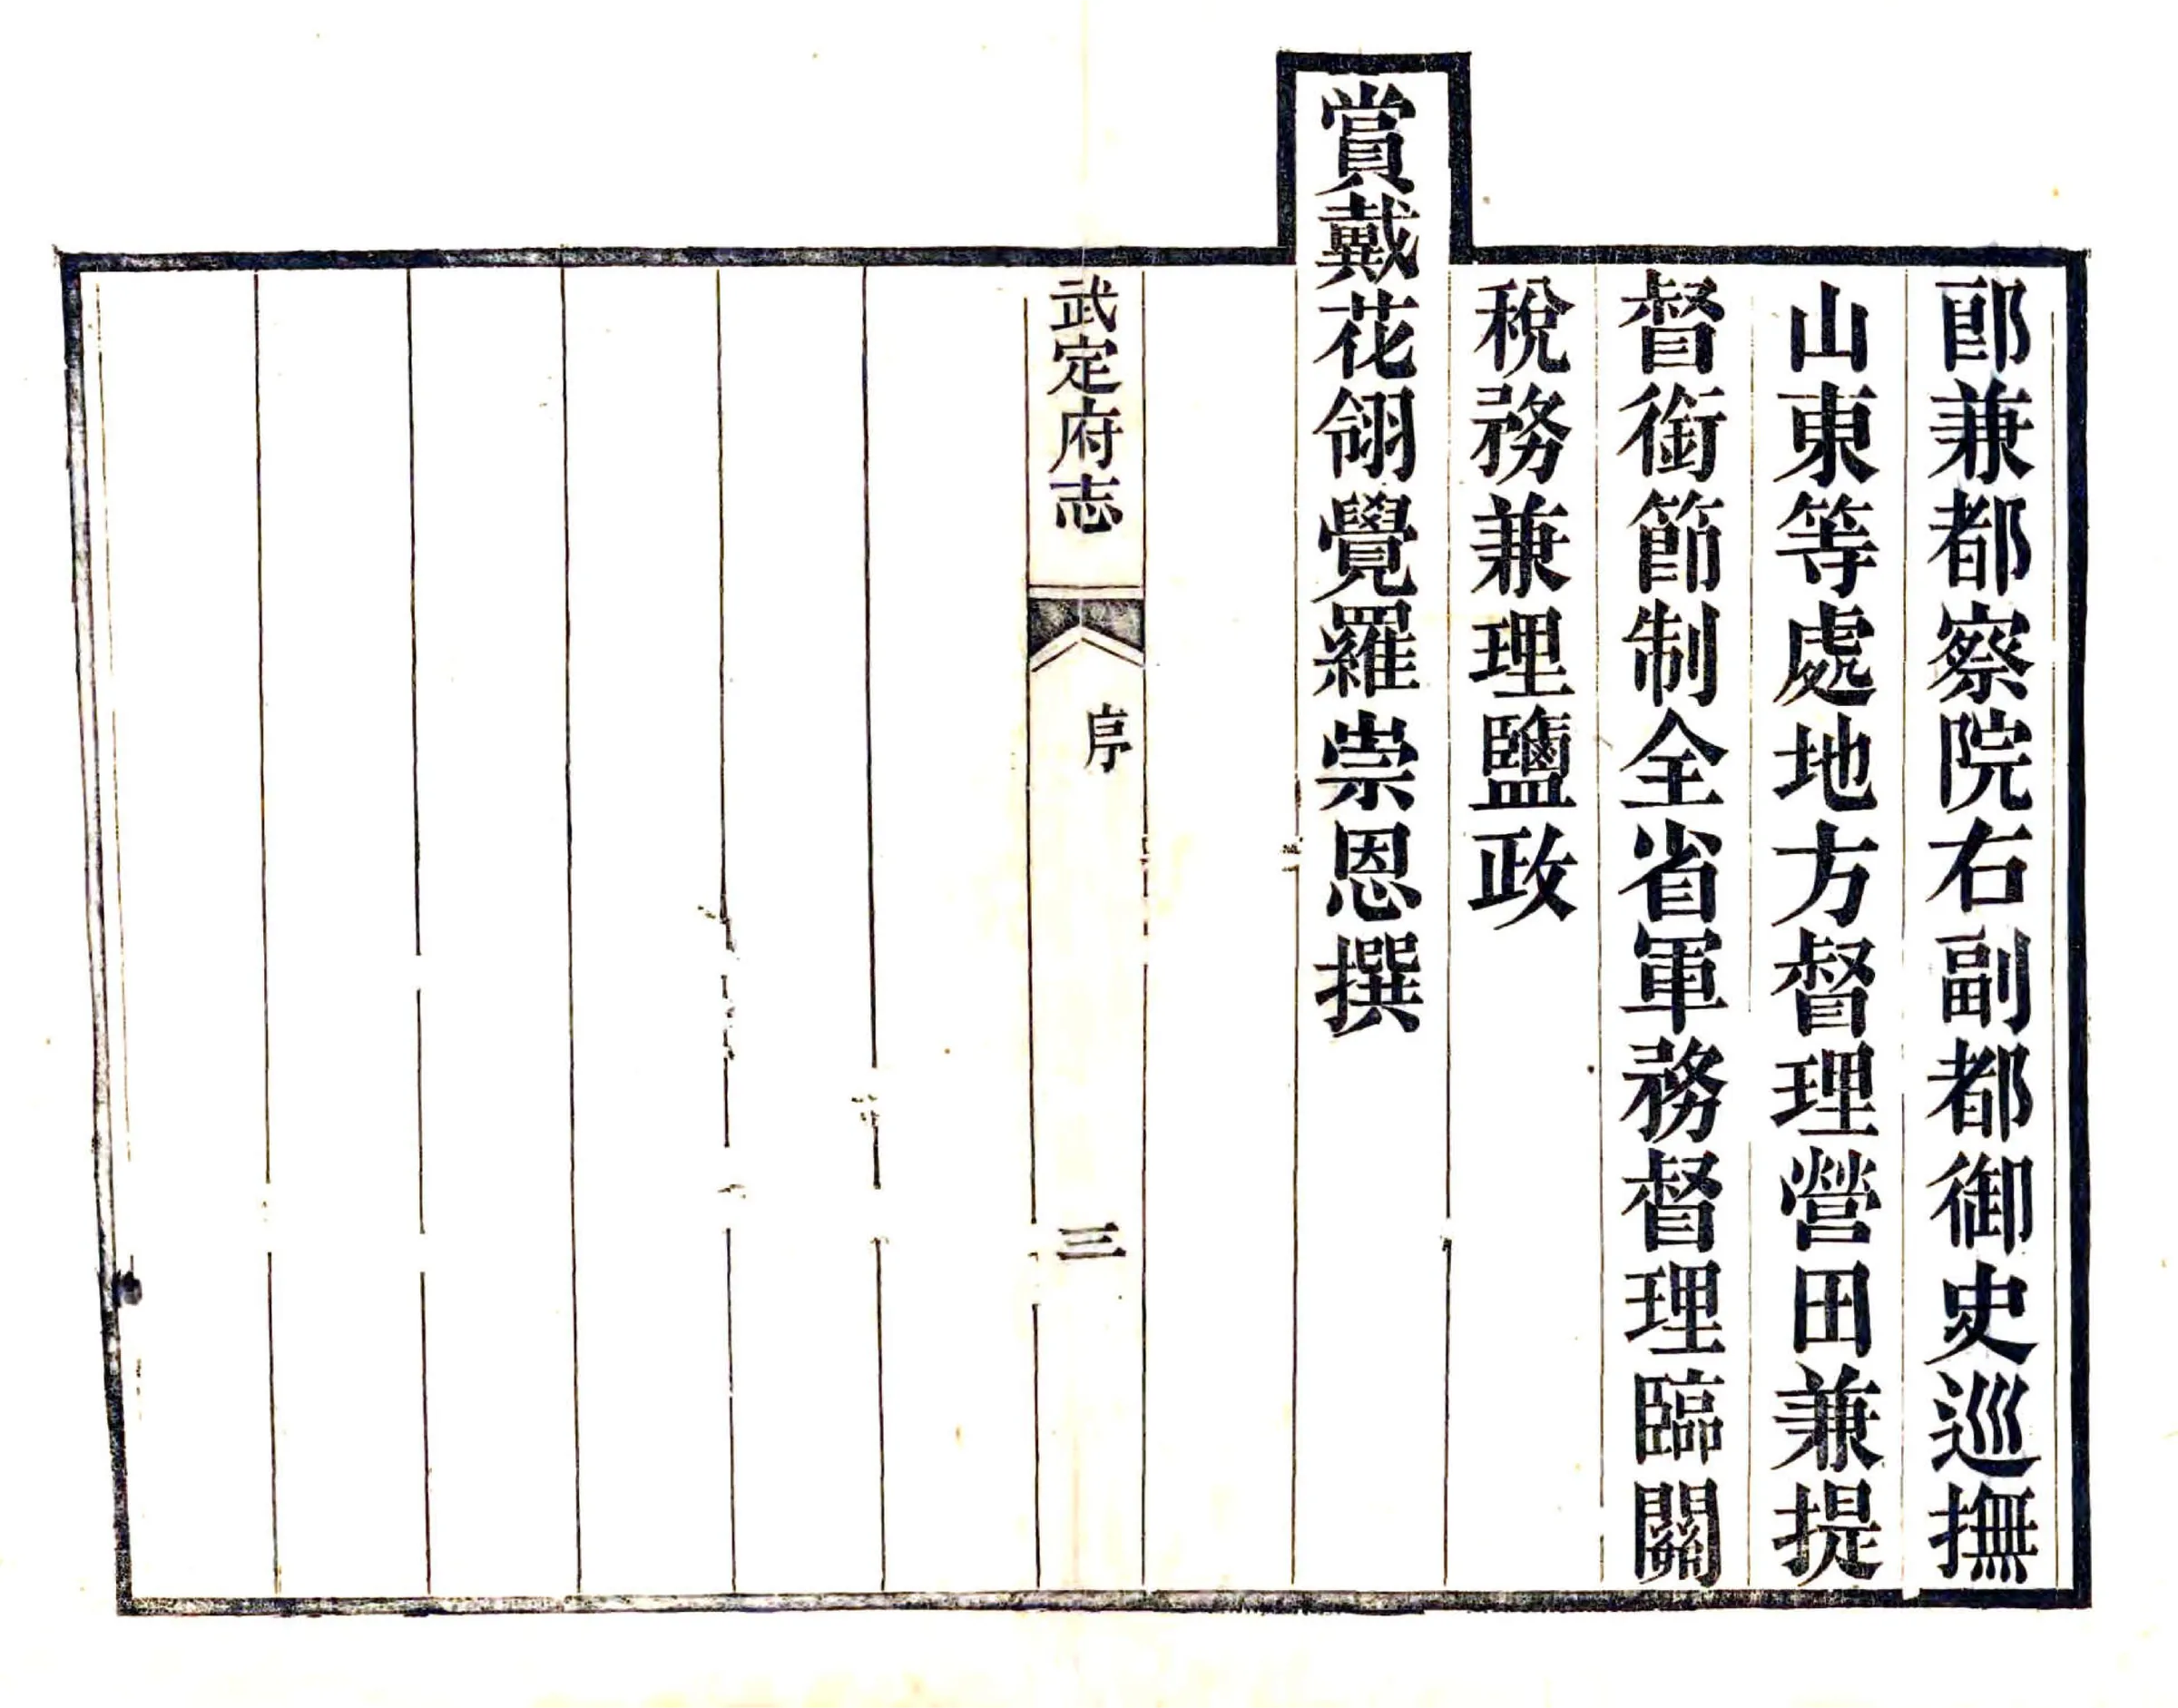 郎兼都察院右副都御史巡撫
山東等處地方督理營田兼提
督銜節制全省軍務督理臨關
稅務兼理鹽政
賞戴花翎覺羅崇恩撰
武定府志
序
三